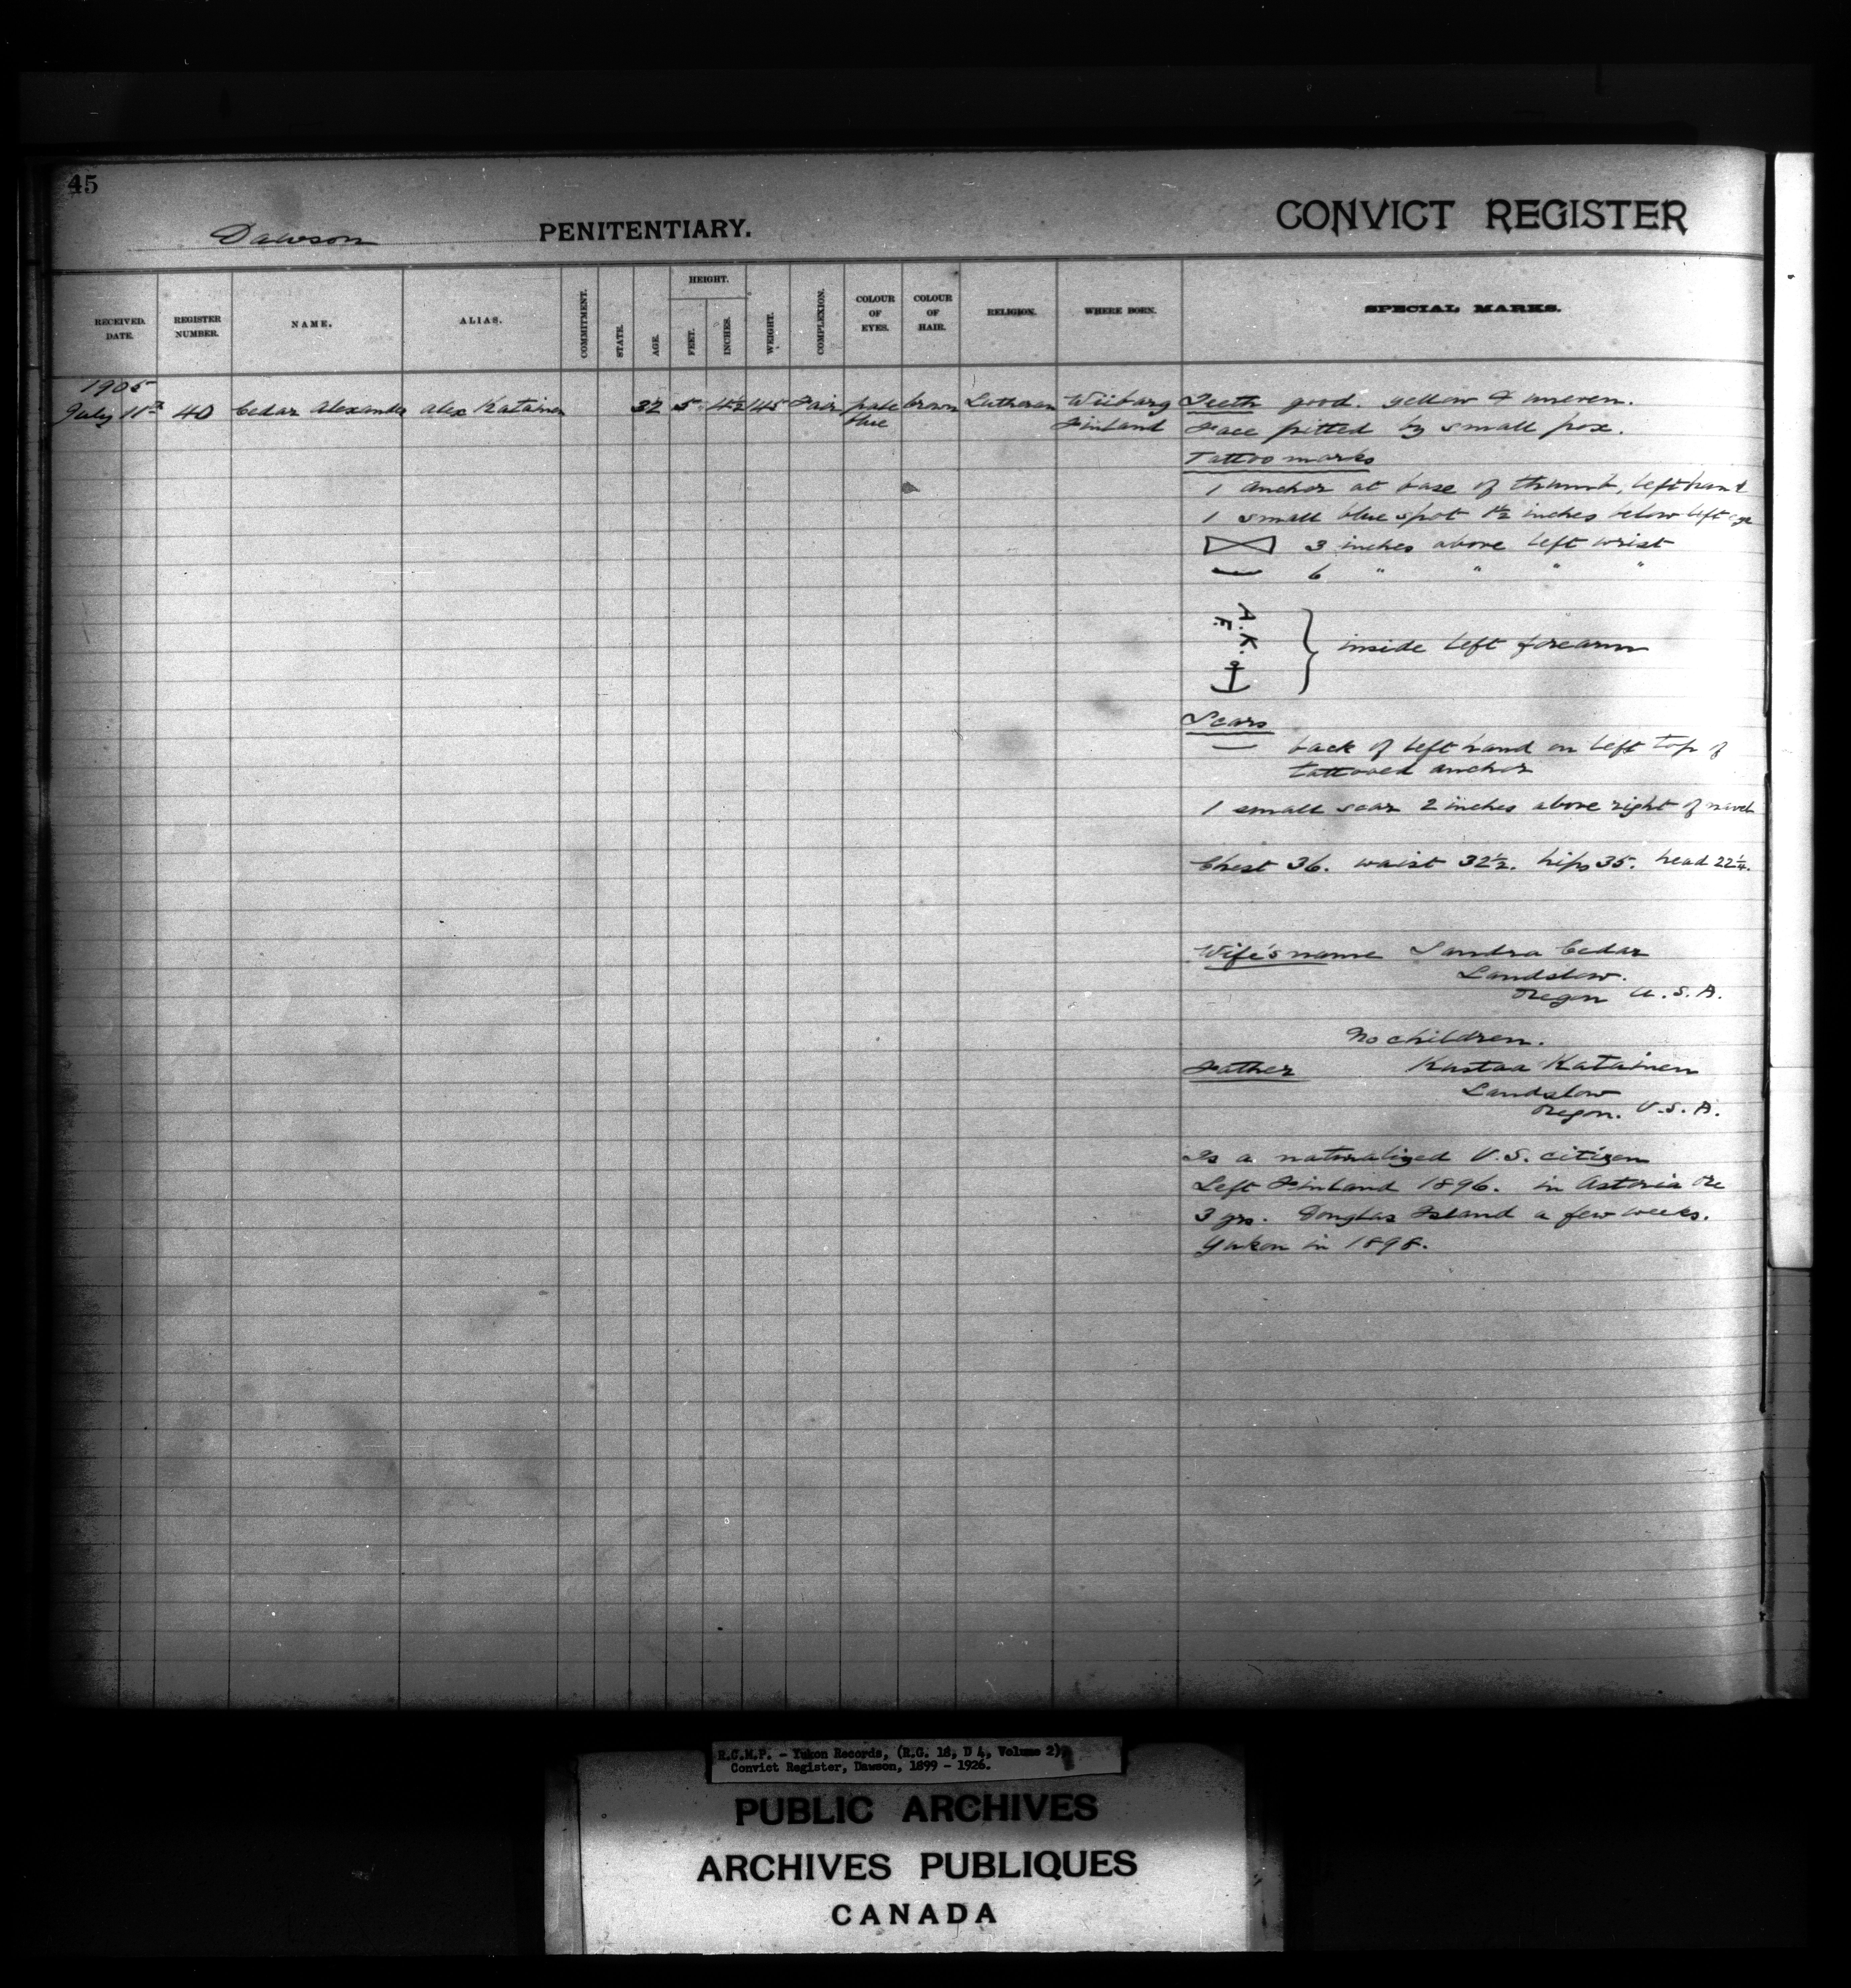 45
Dawson PENITENTIARY. CONVICT REGISTER
RECEIVED. DATE. REGISTER NUMBER. NAME. ALIAS. COMMITMENT. STATE. AGE. HEIGHT. FEET. INCHES. WEIGHT. COMPLEXION. COLOUR OF EYES. COLOUR OF HAIR. RELIGION. WHERE BORN. SPECIAL MARKS.
1905
July 11th 40 Cedar Alexander Alex Katainen 32 5 4½ 145 Fair pale brown Lutheran Wiibarg Teeth good. yellow & uneven.
blue Finland Face pitted by small pox.
Tattoo marks
1 anchor at base of thumb, left hand
1 small blue spot 1½ inches below left eye
3 inches above left wrist
6 " " " "
A. K.
F.
inside left forearm
Scars
back of left hand on left top of
tattooed anchor
1 small scar 2 inches above right of navel
Chest 36. waist 32½. hips 35. head 22¼.
Wife's name Sandra Cedar
Landslow.
Oregon U.S.A.
No children.
Father Kustaa Katainen
Landslow
Oregon. U.S.A.
Is a naturalized U.S. citizen
Left Finland 1896. in Astoria Ore
3 yrs. Douglas Island a few weeks.
Yukon in 1898.
R.C.M.P. - Yukon Records, (R.G. 18, D 4, Volume 2)
Convict Register, Dawson, 1899 - 1926.
PUBLIC ARCHIVES
ARCHIVES PUBLIQUES
CANADA